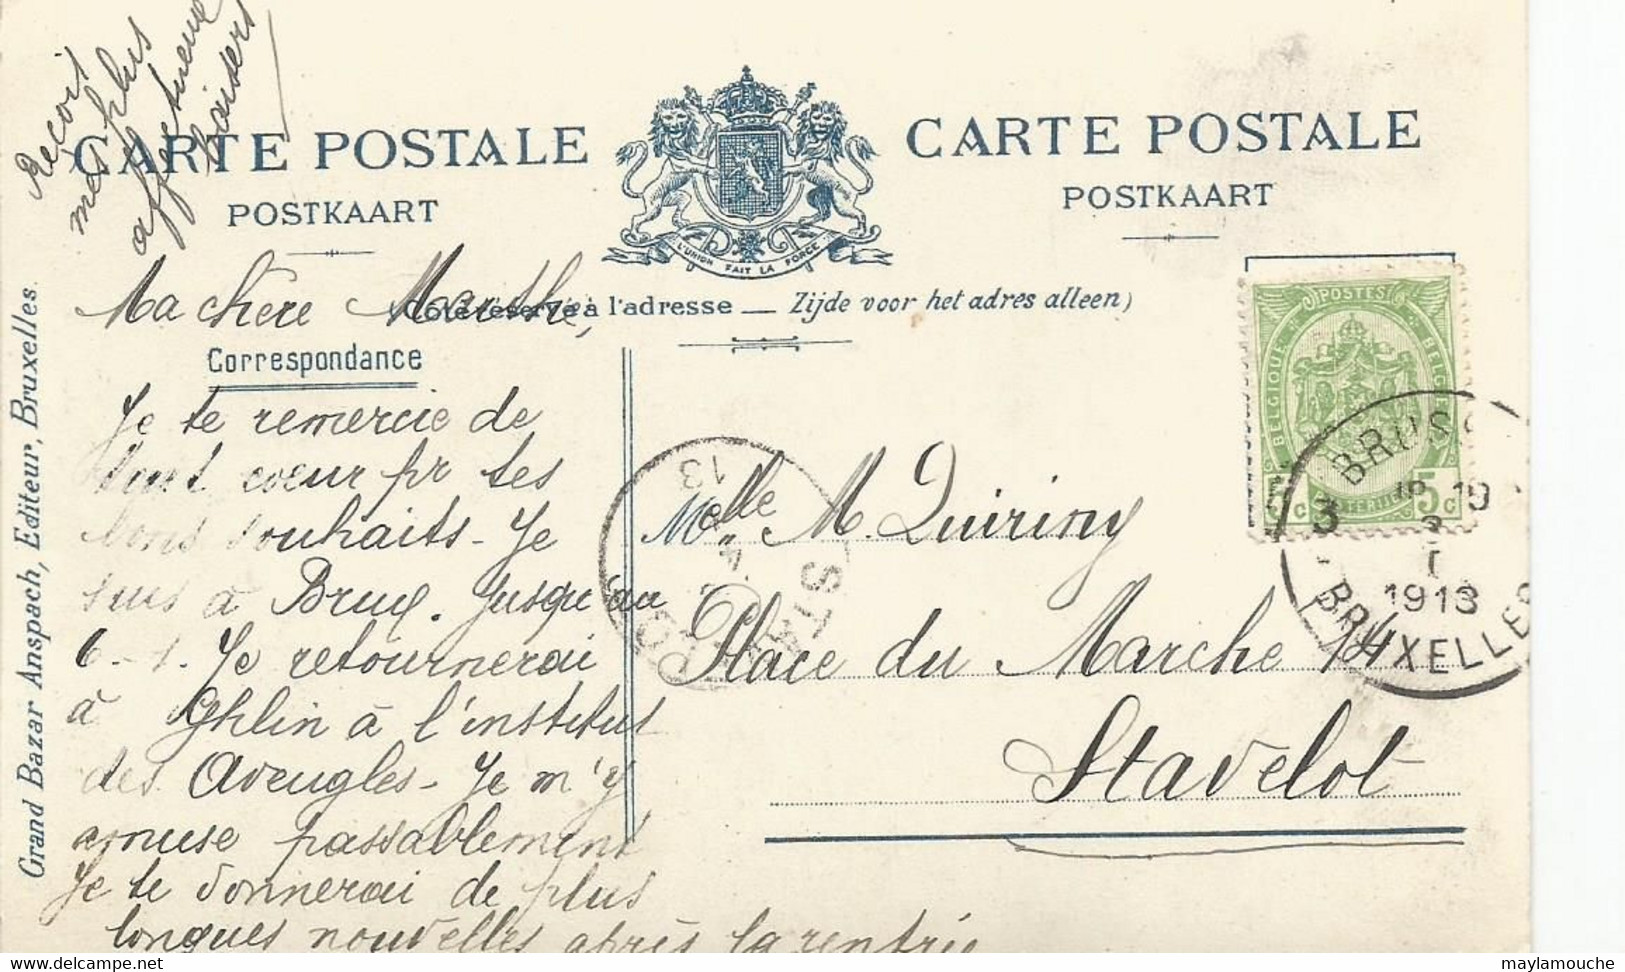 Reçoit
mes plus
affectueux
baisers
CARTE POSTALE
POSTKAART
L'UNION FAIT LA FORCE
CARTE POSTALE
POSTKAART
Ma chère Marthe,
Coté réservé à l'adresse — Zijde voor het adres alleen)
Correspondance
Je te remercie de
tout coeur pr tes
bons souhaits - Je
suis à Brux. jusqu'au
6-1. Je retournerai
à Ghlin à l'institut
des Aveugles - Je m'y
amuse passablement
Je te donnerai de plus
longues nouvelles après la rentrée
Melle M. Quiriny
Place du Marche 14
Stavelot
POSTES
BELGIQUE
BELGIE
5c
BRUSS
1913
BRUXELLES
13
4
STA
Grand Bazar Anspach, Editeur, Bruxelles.
maylamouche